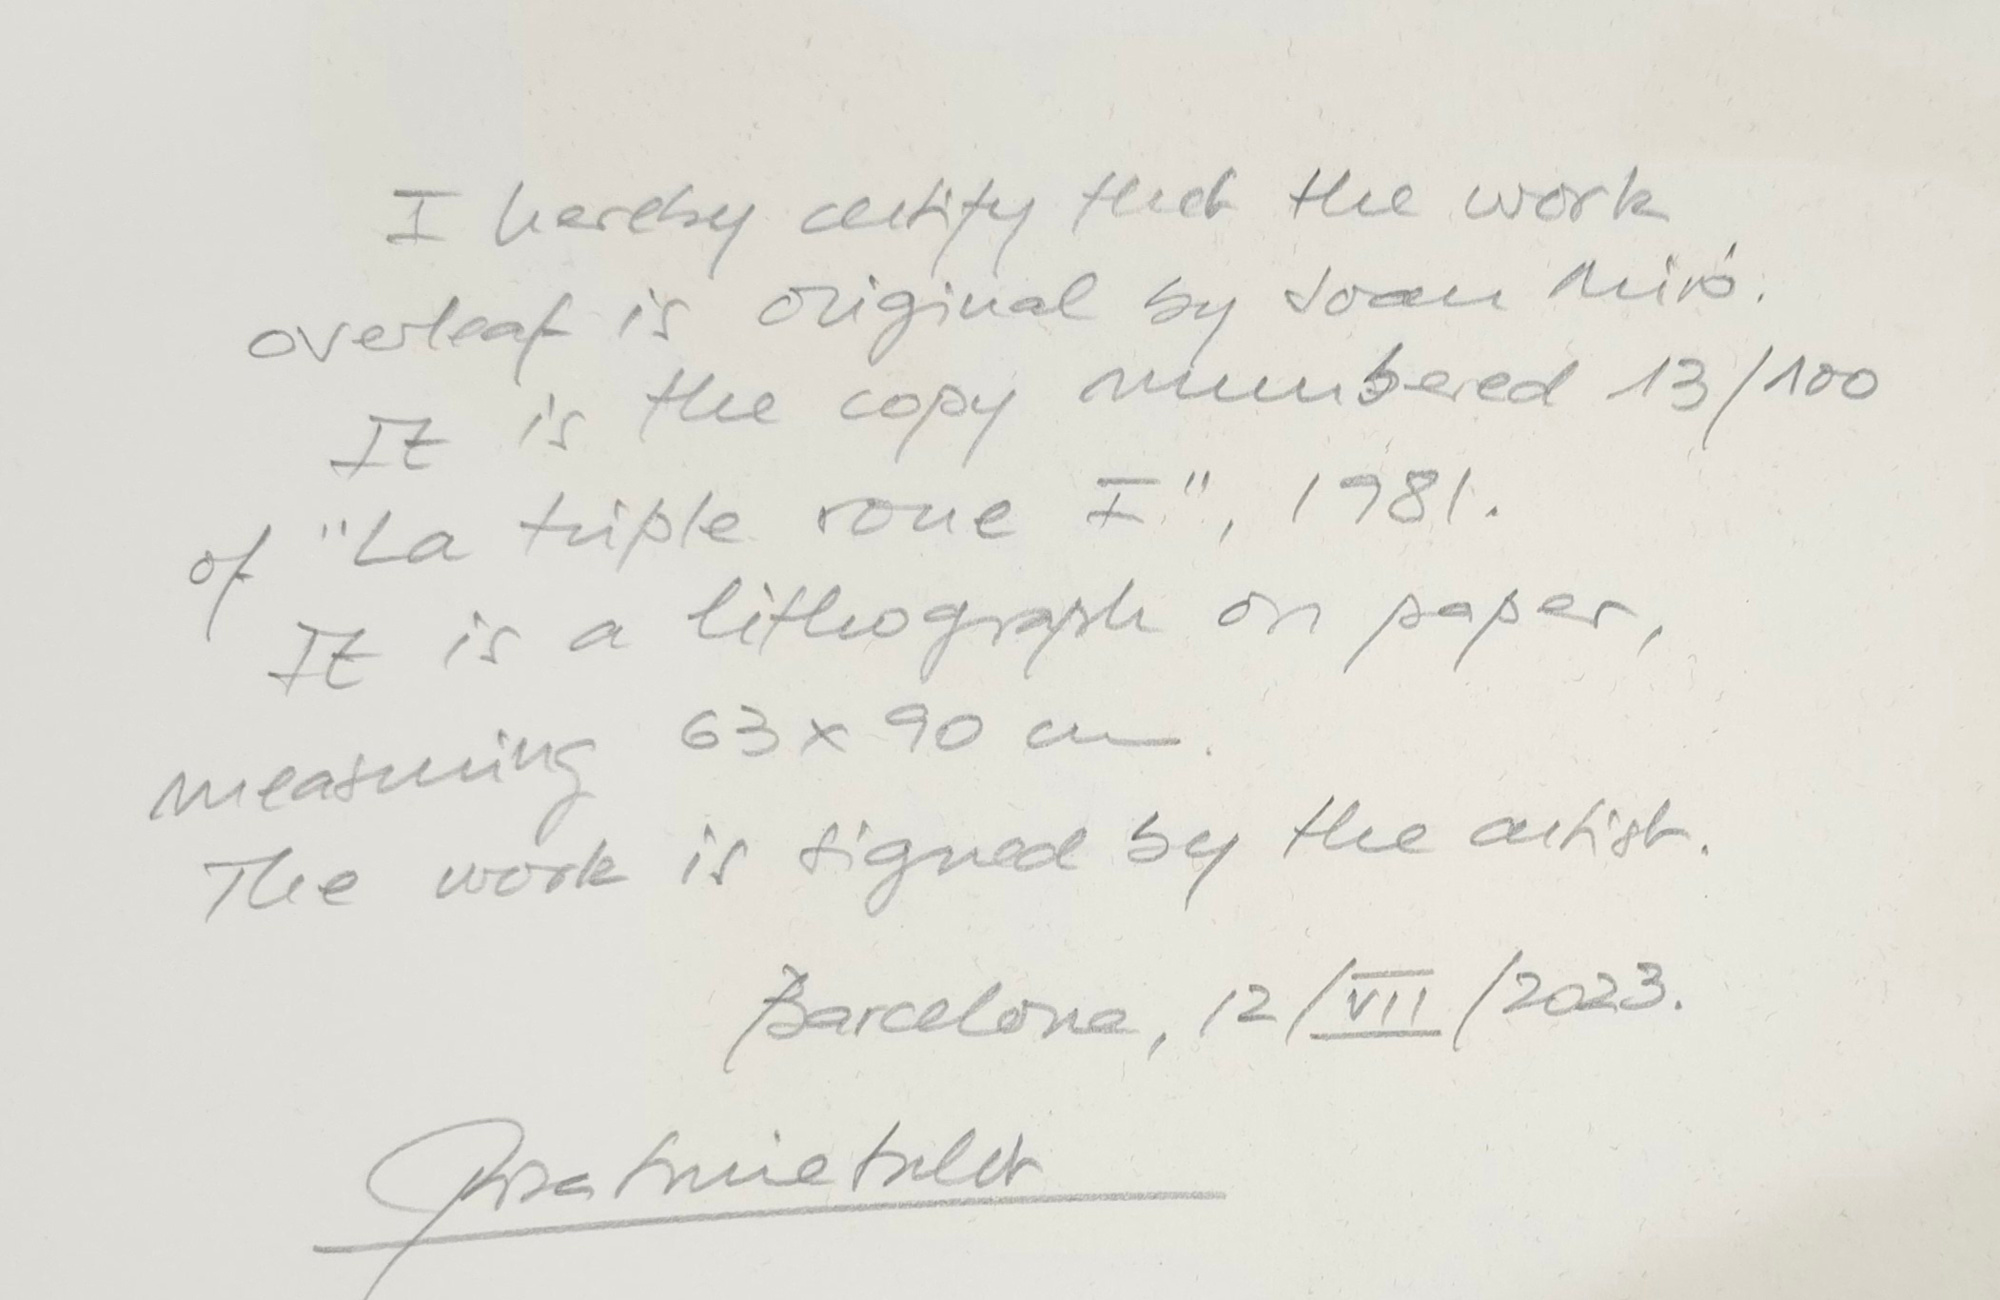 I hereby certify that the work
overleaf is original by Joan Miró.
It is the copy numbered 13/100
of "La triple roue I", 1981.
It is a lithograph on paper,
measuring 63 x 90 cm.
The work is signed by the artist.
Barcelona, 12/VII/2023.